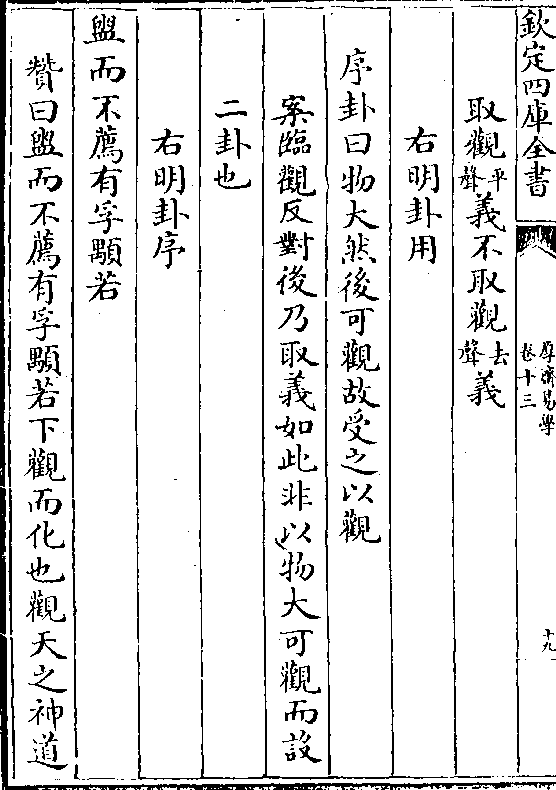 欽定四庫全書
厚齋易學
卷十三
十九
取觀平聲義不取觀去聲義
右明卦用
序卦曰物大然後可觀故受之以觀
案臨觀反對後乃取義如此非以物大可觀而設
二卦也
右明卦序
盥而不薦有孚顒若
贊曰盥而不薦有孚顒若下觀而化也觀天之神道